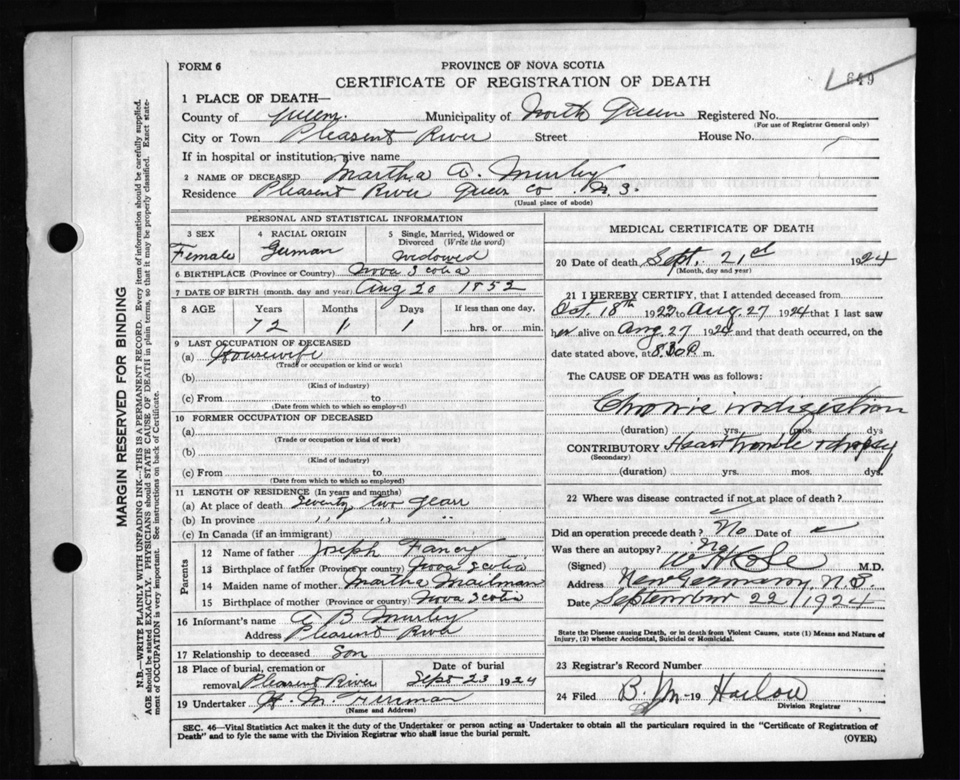 FORM 6
PROVINCE OF NOVA SCOTIA
649
CERTIFICATE OF REGISTRATION OF DEATH
1 PLACE OF DEATH—
County of Queens. Municipality of North Queen Registered No.
(For use of Registrar General only)
City or Town Pleasent River Street House No.
If in hospital or institution, give name
2 NAME OF DECEASED Martha A.
Residence Pleasent River Queen Co N. S.
(Usual place of abode)
PERSONAL AND STATISTICAL INFORMATION
3 SEX 4 RACIAL ORIGIN 5 Single, Married, Widowed or Divorced (Write the word)
Female German Widowed
6 BIRTHPLACE (Province or Country) Nova Scotia
7 DATE OF BIRTH (month, day and year) Aug 20 1852
8 AGE Years Months Days If less than one day,
72 1 1 hrs. or min.
9 LAST OCCUPATION OF DECEASED
(a) Housewife
(Trade or occupation or kind or work)
(b)
(Kind of industry)
(c) From to
(Date from which to which so employed)
10 FORMER OCCUPATION OF DECEASED
(a)
(Trade or occupation or kind of work)
(b)
(Kind of industry)
(c) From to
(Date from which to which so employed)
11 LENGTH OF RESIDENCE (In years and months)
(a) At place of death Seventy two years
(b) In province " " "
(c) In Canada (if an immigrant)
Parents
12 Name of father Joseph Fancy
13 Birthplace of father (Province or country) Nova Scotia
14 Maiden name of mother Martha Mailman
15 Birthplace of mother (Province or country) Nova Scotia
16 Informant's name B
Address Pleasent River
17 Relationship to deceased Son
18 Place of burial, cremation or removal Pleasent River Date of burial Sept 23 1924
19 Undertaker H. M.
(Name and Address)
MEDICAL CERTIFICATE OF DEATH
20 Date of death Sept. 21st 1924
(Month, day and year)
21 I HEREBY CERTIFY, that I attended deceased from
Oct. 18th 1922 to Aug 27 1924 that I last saw
her alive on Aug. 27 1924 and that death occurred, on the
date stated above, at 8.30 P. m.
The CAUSE OF DEATH was as follows:
Chronic indigestion
(duration) yrs. mos. dys
CONTRIBUTORY Heart trouble & dropsy
(Secondary)
(duration) yrs. mos. dys.
22 Where was disease contracted if not at place of death?
Did an operation precede death? No Date of
Was there an autopsy? No
(Signed) W H Cole M.D.
Address New Germany N.S.
Date September 22/1924
State the Disease causing Death, or in death from Violent Causes, state (1) Means and Nature of
Injury, (2) whether Accidental, Suicidal or Homicidal.
23 Registrar's Record Number
24 Filed B. M. 19 Harlow
Division Registrar
SEC. 46—Vital Statistics Act makes it the duty of the Undertaker or person acting as Undertaker to obtain all the particulars required in the "Certificate of Registration of
Death" and to fyle the same with the Division Registrar who shall issue the burial permit.
(OVER)
MARGIN RESERVED FOR BINDING
N.B.—WRITE PLAINLY WITH UNFADING INK—THIS IS A PERMANENT RECORD. Every item of information should be carefully supplied.
AGE should be stated EXACTLY. PHYSICIANS should STATE CAUSE OF DEATH in plain terms, so that it may be properly classified. Exact state-
ment of OCCUPATION is very important. See instructions on back of Certificate.